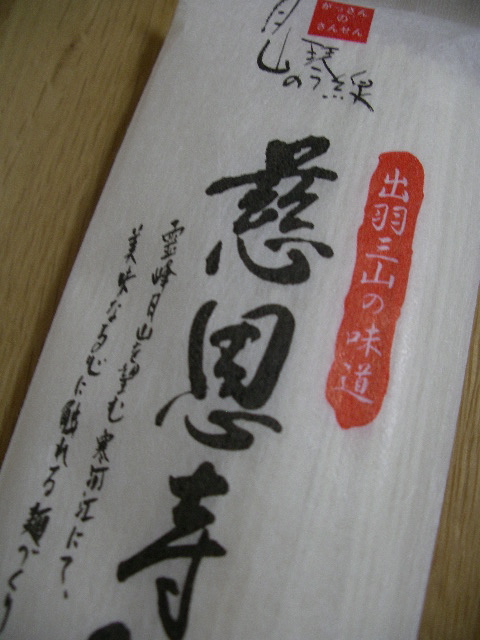 がっさん
の
さんせん
月山の
出羽三山の味道
慈恩寺
霊峰月山を望む寒河江にて、
美味なるむに触れる麺づくり